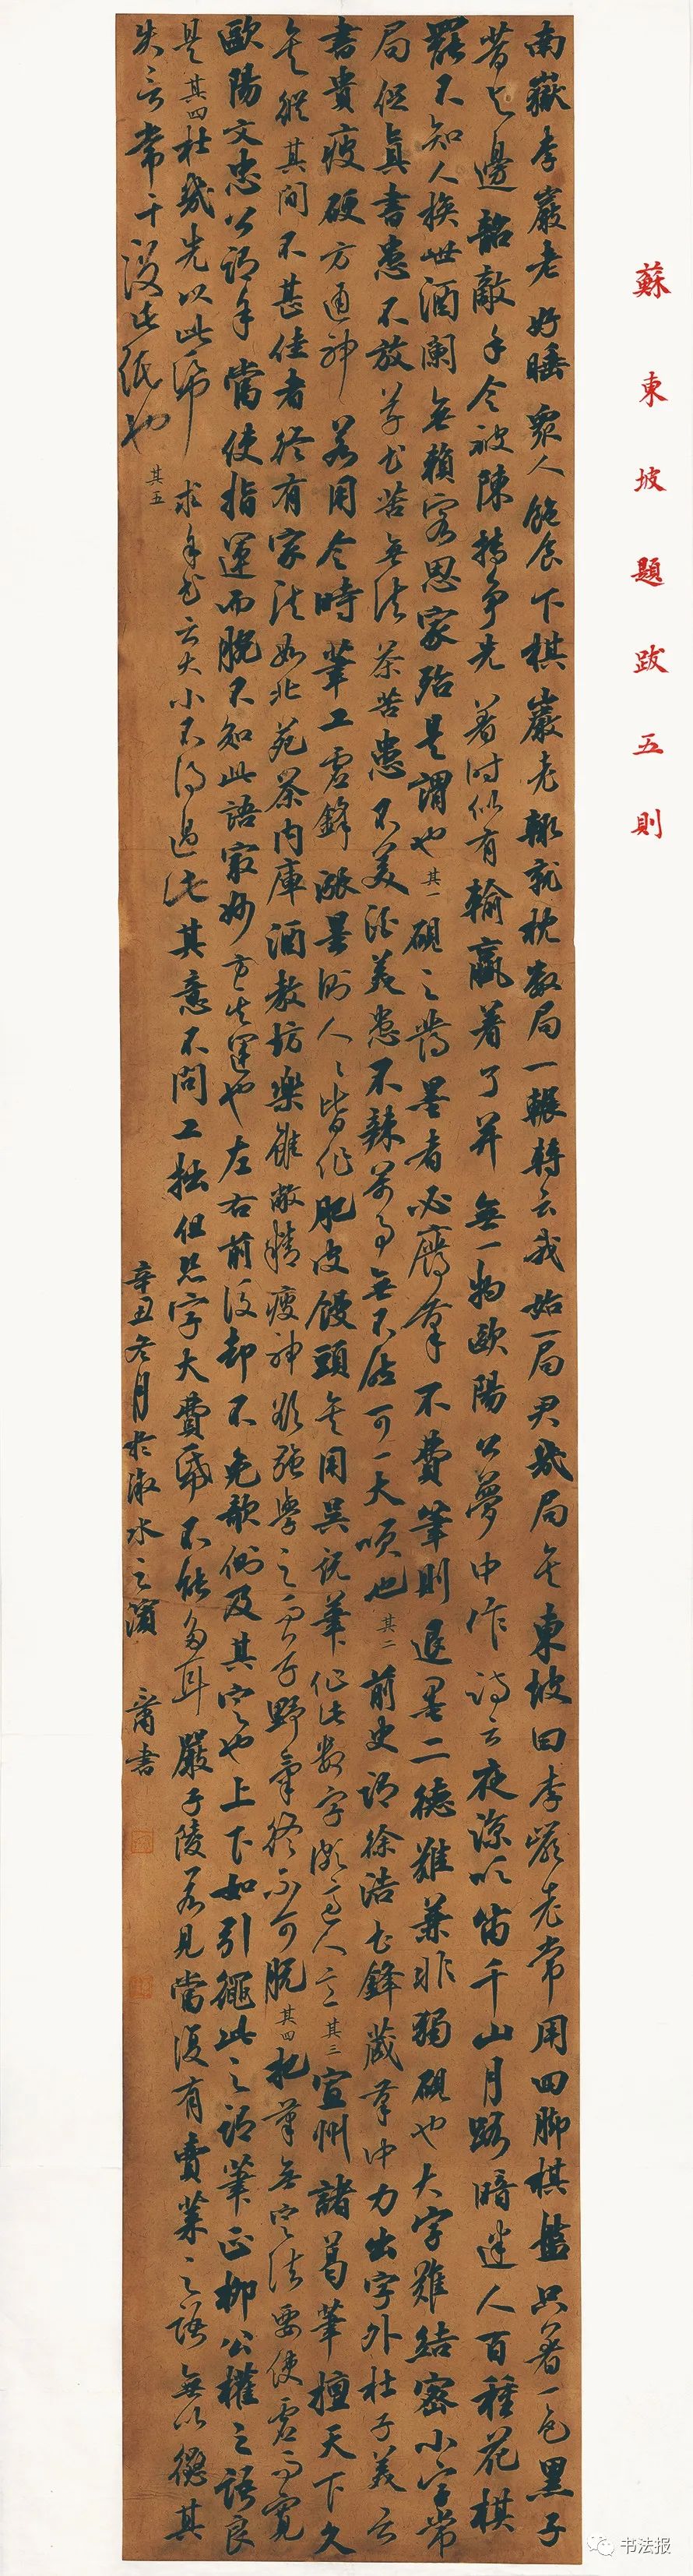 蘇東坡題跋五則
南嶽李巖老好睡衆人飽食下棋巖老輒就枕數局一輾轉云我始一局君幾局矣東坡曰李巖老常用四脚棋盤只著一色黑子
昔与邊韶敵手今被陳摶争先著時似有輸贏著了并無一物歐陽公夢中作詩云夜涼吹笛千山月路暗迷人百種花棋
罷不知人換世酒闌無賴客思家殆是謂也其一硯之發墨者必筆不費筆則退墨二德難兼非獨硯也大字難結密小字常
局促真書患不放草書苦無法茶苦患不美酒美患不辣萬事無不然可一大也其二前史謂徐浩書鋒藏筆中力出字外杜子美云
書貴瘦硬方通神若用今時筆工虛鋒漲墨則人人皆作肥皮饅頭矣用吳説筆作此數字頗適人意其三宣州諸葛筆擅天下久
矣縱其間不甚佳者終有家法如北苑茶内庫酒教坊樂雖敝精瘦神欲强學之而野氣終不可脱其四把筆無定法要使虛而寬
歐陽文忠公謂余當使指運而腕不知此語最妙方其運也左右前後却不免欹側及其定也上下如引繩此之謂筆正柳公權之語良
是其四杜幾先以此紙求余書云大小不得過此其意不問工拙但恐字大費紙不能多耳嚴子陵若見當復有賣菜之語無以懲其
失言當干没此紙也其五辛丑冬月於淑水之濱書
书法报